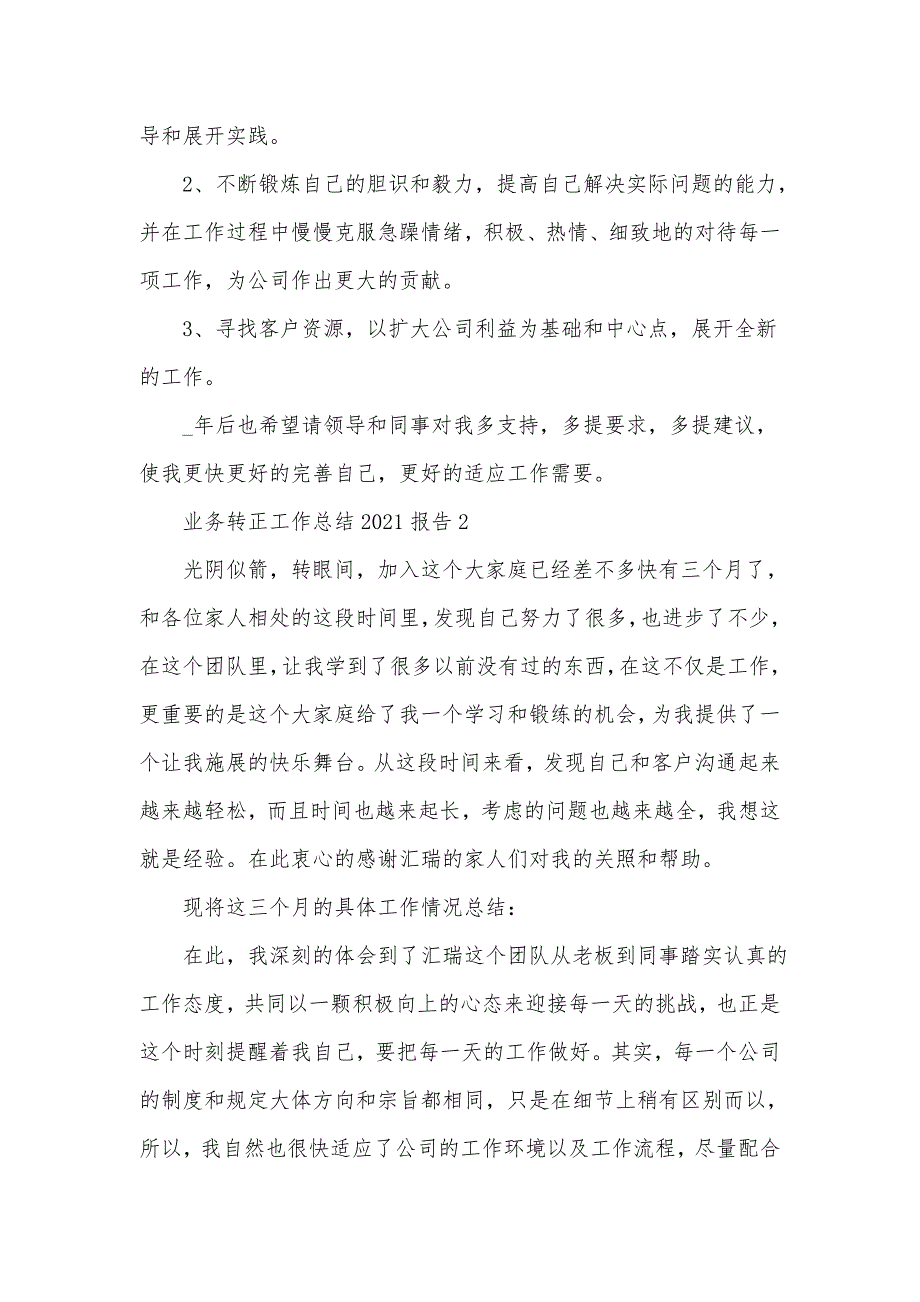 导和展开实践。
2、不断锻炼自己的胆识和毅力，提高自己解决实际问题的能力，
并在工作过程中慢慢克服急躁情绪，积极、热情、细致地的对待每一
项工作，为公司作出更大的贡献。
3、寻找客户资源，以扩大公司利益为基础和中心点，展开全新
的工作。
_年后也希望请领导和同事对我多支持，多提要求，多提建议，
使我更快更好的完善自己，更好的适应工作需要。
业务转正工作总结2021报告2
光阴似箭，转眼间，加入这个大家庭已经差不多快有三个月了，
和各位家人相处的这段时间里，发现自己努力了很多，也进步了不少，
在这个团队里，让我学到了很多以前没有过的东西，在这不仅是工作，
更重要的是这个大家庭给了我一个学习和锻练的机会，为我提供了一
个让我施展的快乐舞台。从这段时间来看，发现自己和客户沟通起来
越来越轻松，而且时间也越来起长，考虑的问题也越来越全，我想这
就是经验。在此衷心的感谢汇瑞的家人们对我的关照和帮助。
现将这三个月的具体工作情况总结：
在此，我深刻的体会到了汇瑞这个团队从老板到同事踏实认真的
工作态度，共同以一颗积极向上的心态来迎接每一天的挑战，也正是
这个时刻提醒着我自己，要把每一天的工作做好。其实，每一个公司
的制度和规定大体方向和宗旨都相同，只是在细节上稍有区别而以，
所以，我自然也很快适应了公司的工作环境以及工作流程，尽量配合